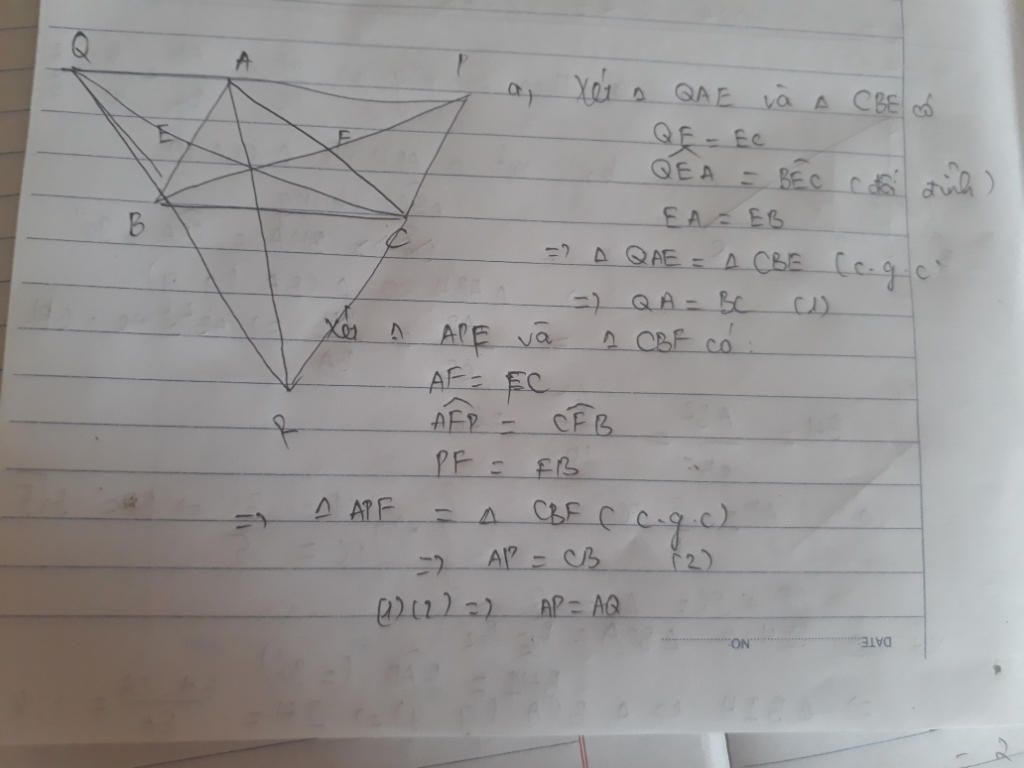 Q A P
a, Xét Δ QAE và Δ CBE có
QE = EC
E F
QÊA = BÊC (đối đỉnh)
EA = EB
B C
=> Δ QAE = Δ CBE (c.g.c)
=> QA = BC (1)
Xét Δ APF và Δ CBF có:
AF = FC
R
AF̂P = CF̂B
PF = FB
=> Δ APF = Δ CBF (c.g.c)
=> AP = CB (2)
(1)(2) => AP = AQ
DATE NO
- 2